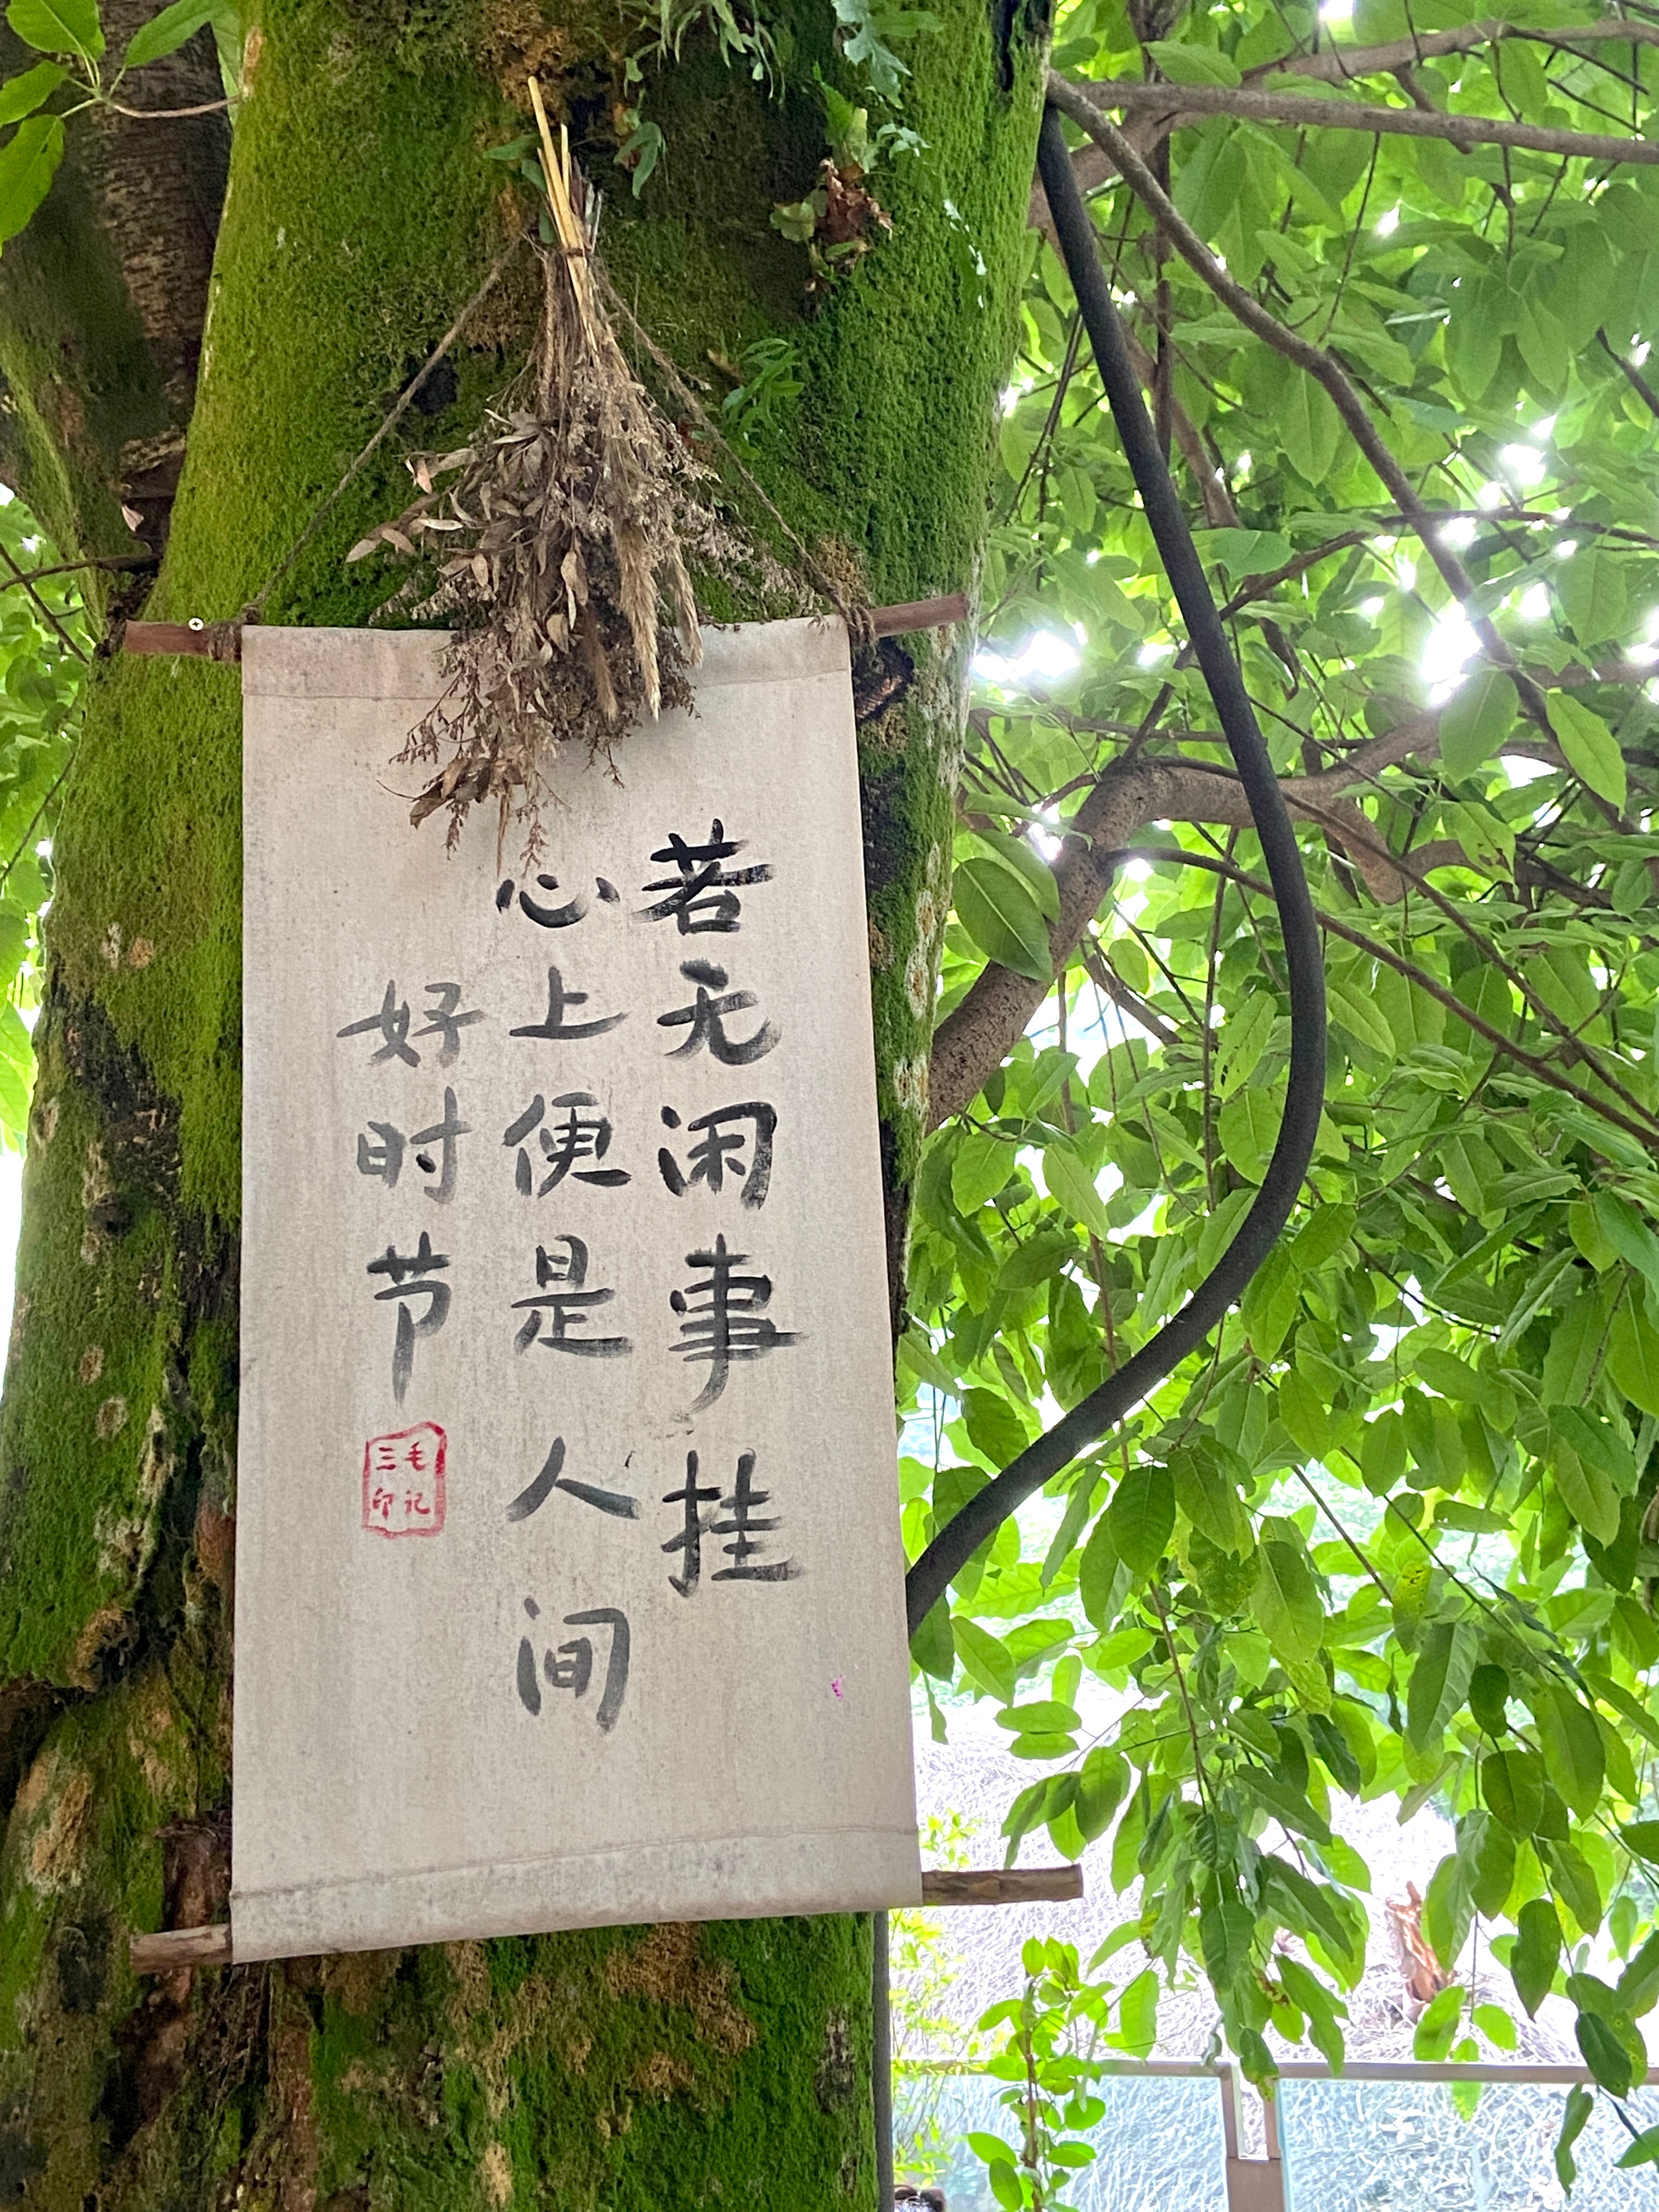 若无闲事挂
心上便是人间
好时节
毛记
三印